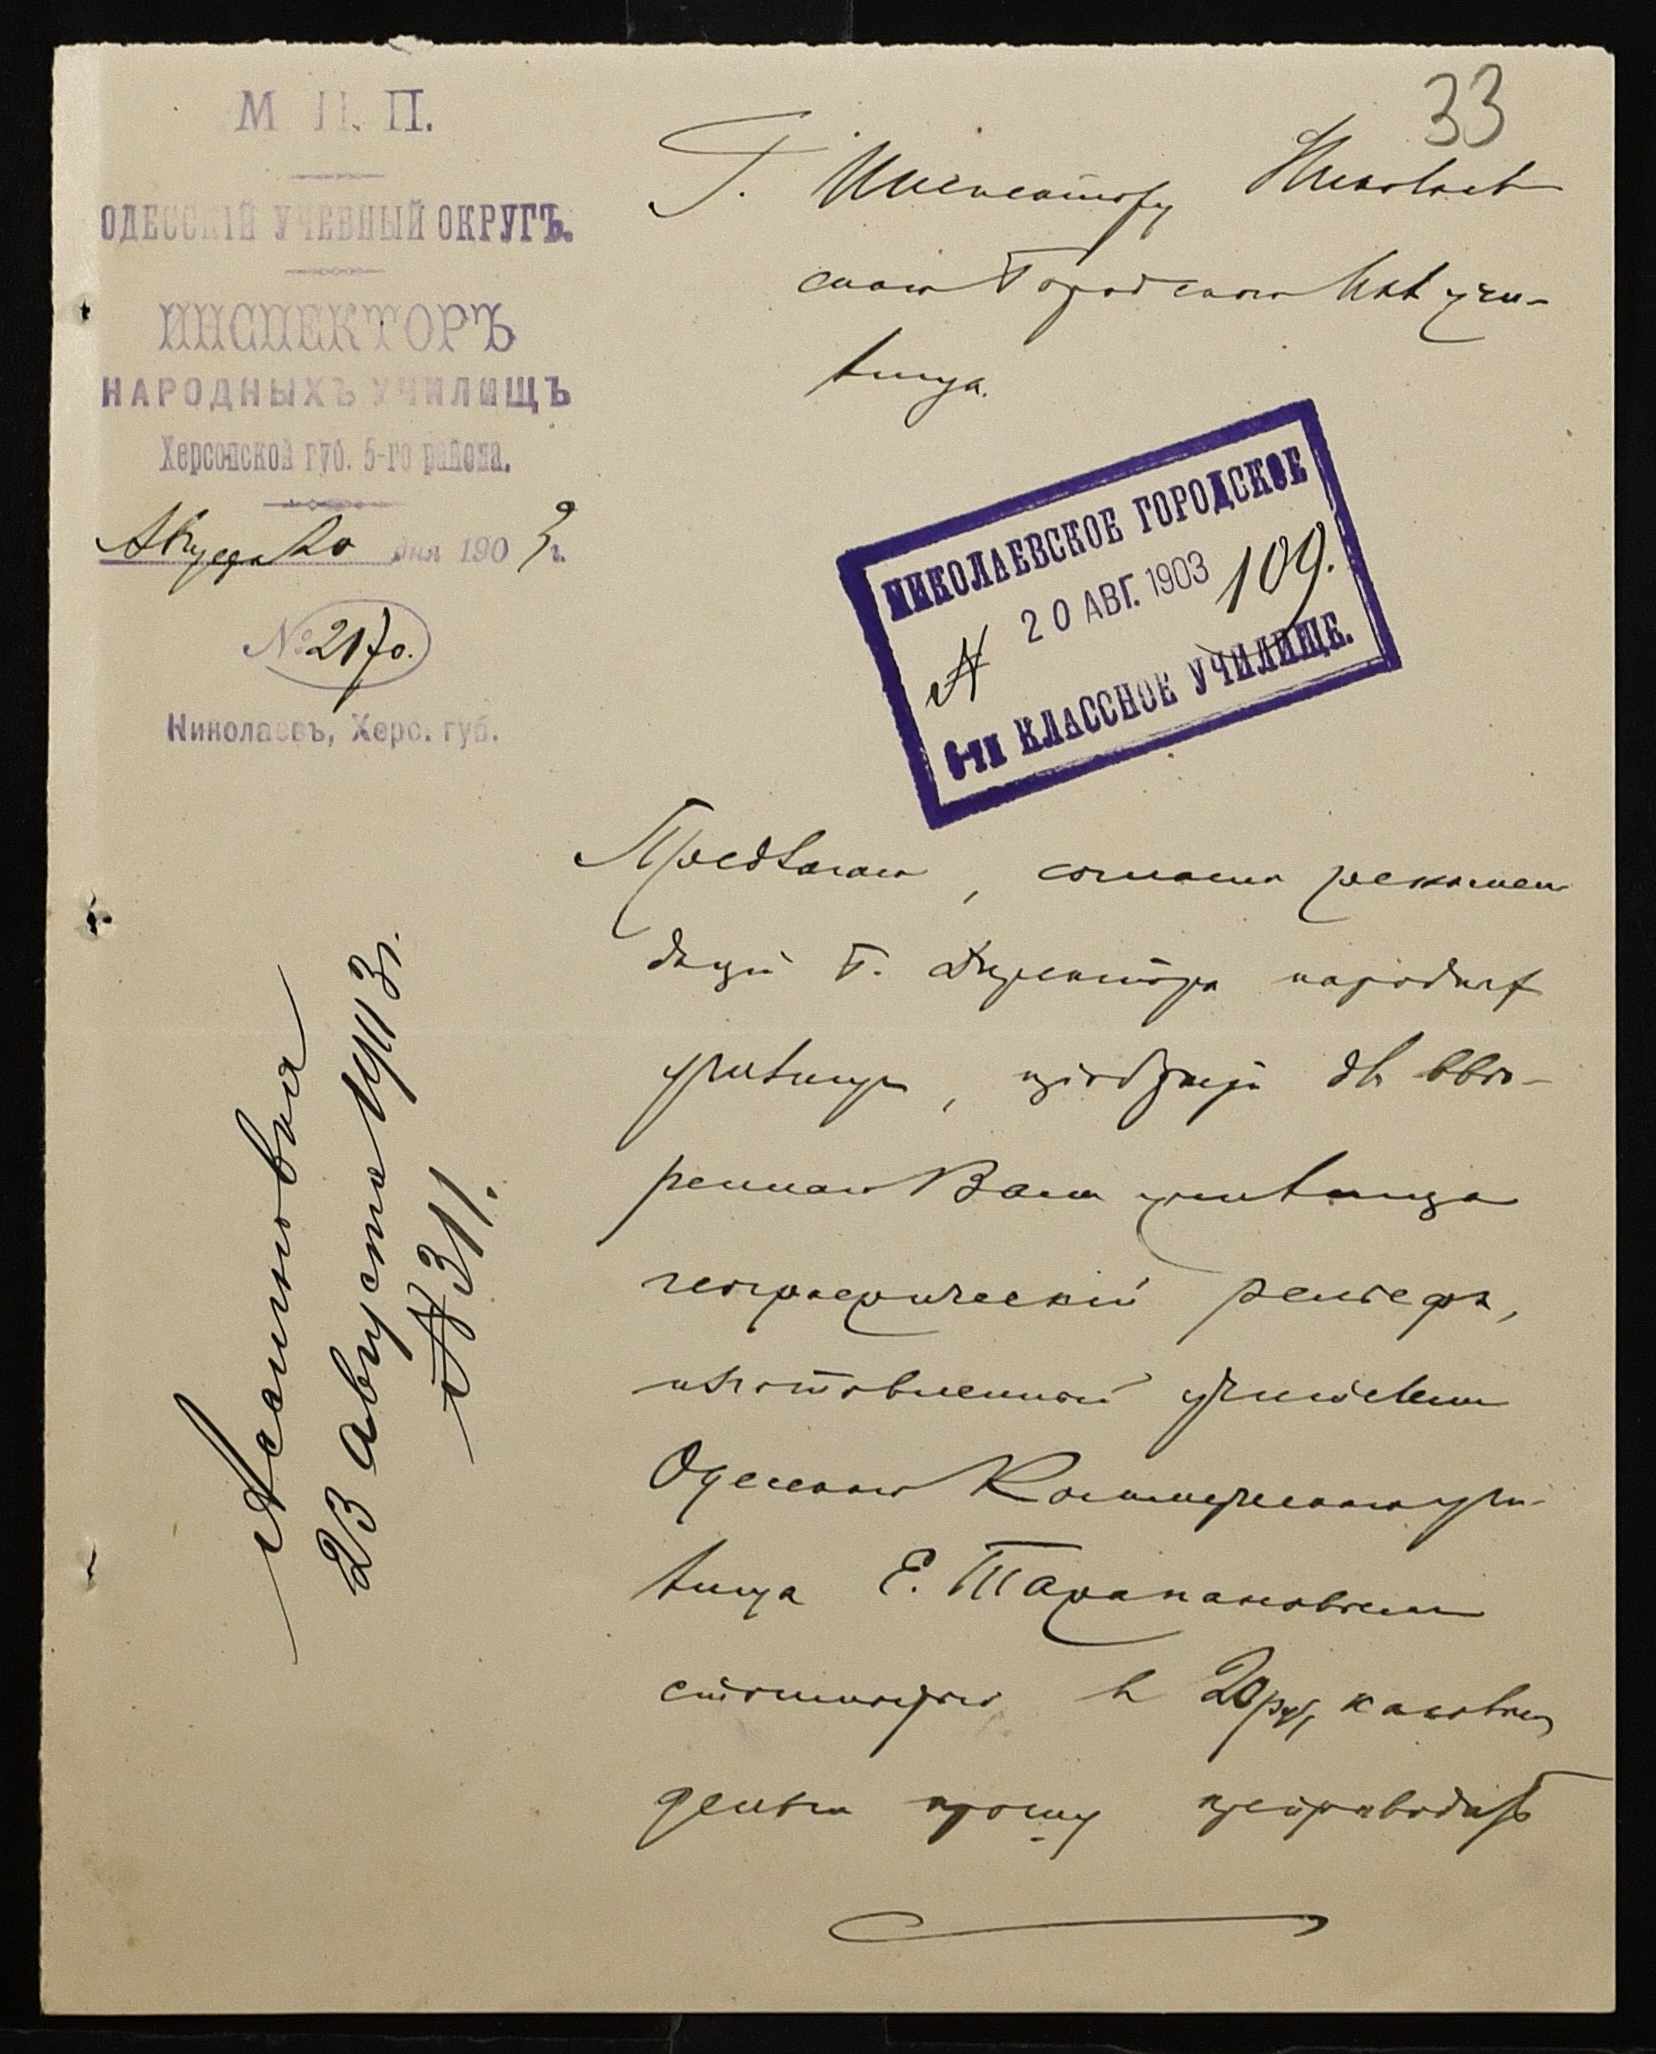 33
М. Н. П.
ОДЕССКІЙ УЧЕБНЫЙ ОКРУГЪ.
ИНСПЕКТОРЪ
НАРОДНЫХЪ УЧИЛИЩЪ
Херсонской губ. 5-го района.
Августа 20 дня 1903 г.
№ 2170.
Николаевъ, Херс. губ.
Г. Инспектору Николаев
скаго Городскаго учи-
лища.
НИКОЛАЕВСКОЕ ГОРОДСКОЕ
20 АВГ. 1903
№ 109.
6-ти КЛАССНОЕ УЧИЛИЩЕ.
Предлагаю, согласно рекомен
даціи Г. Директора народных
училищ, пріобрѣсти для ввѣ-
реннаго Вам училища
географическій рельефъ,
изготовленный учителем
Одесскаго Коммерческаго учи-
лища Е. Тарапановским
стоимостью в 20 руб, каковыя
деньги прошу препроводить
23 Августа 1903 г.
№ 311.